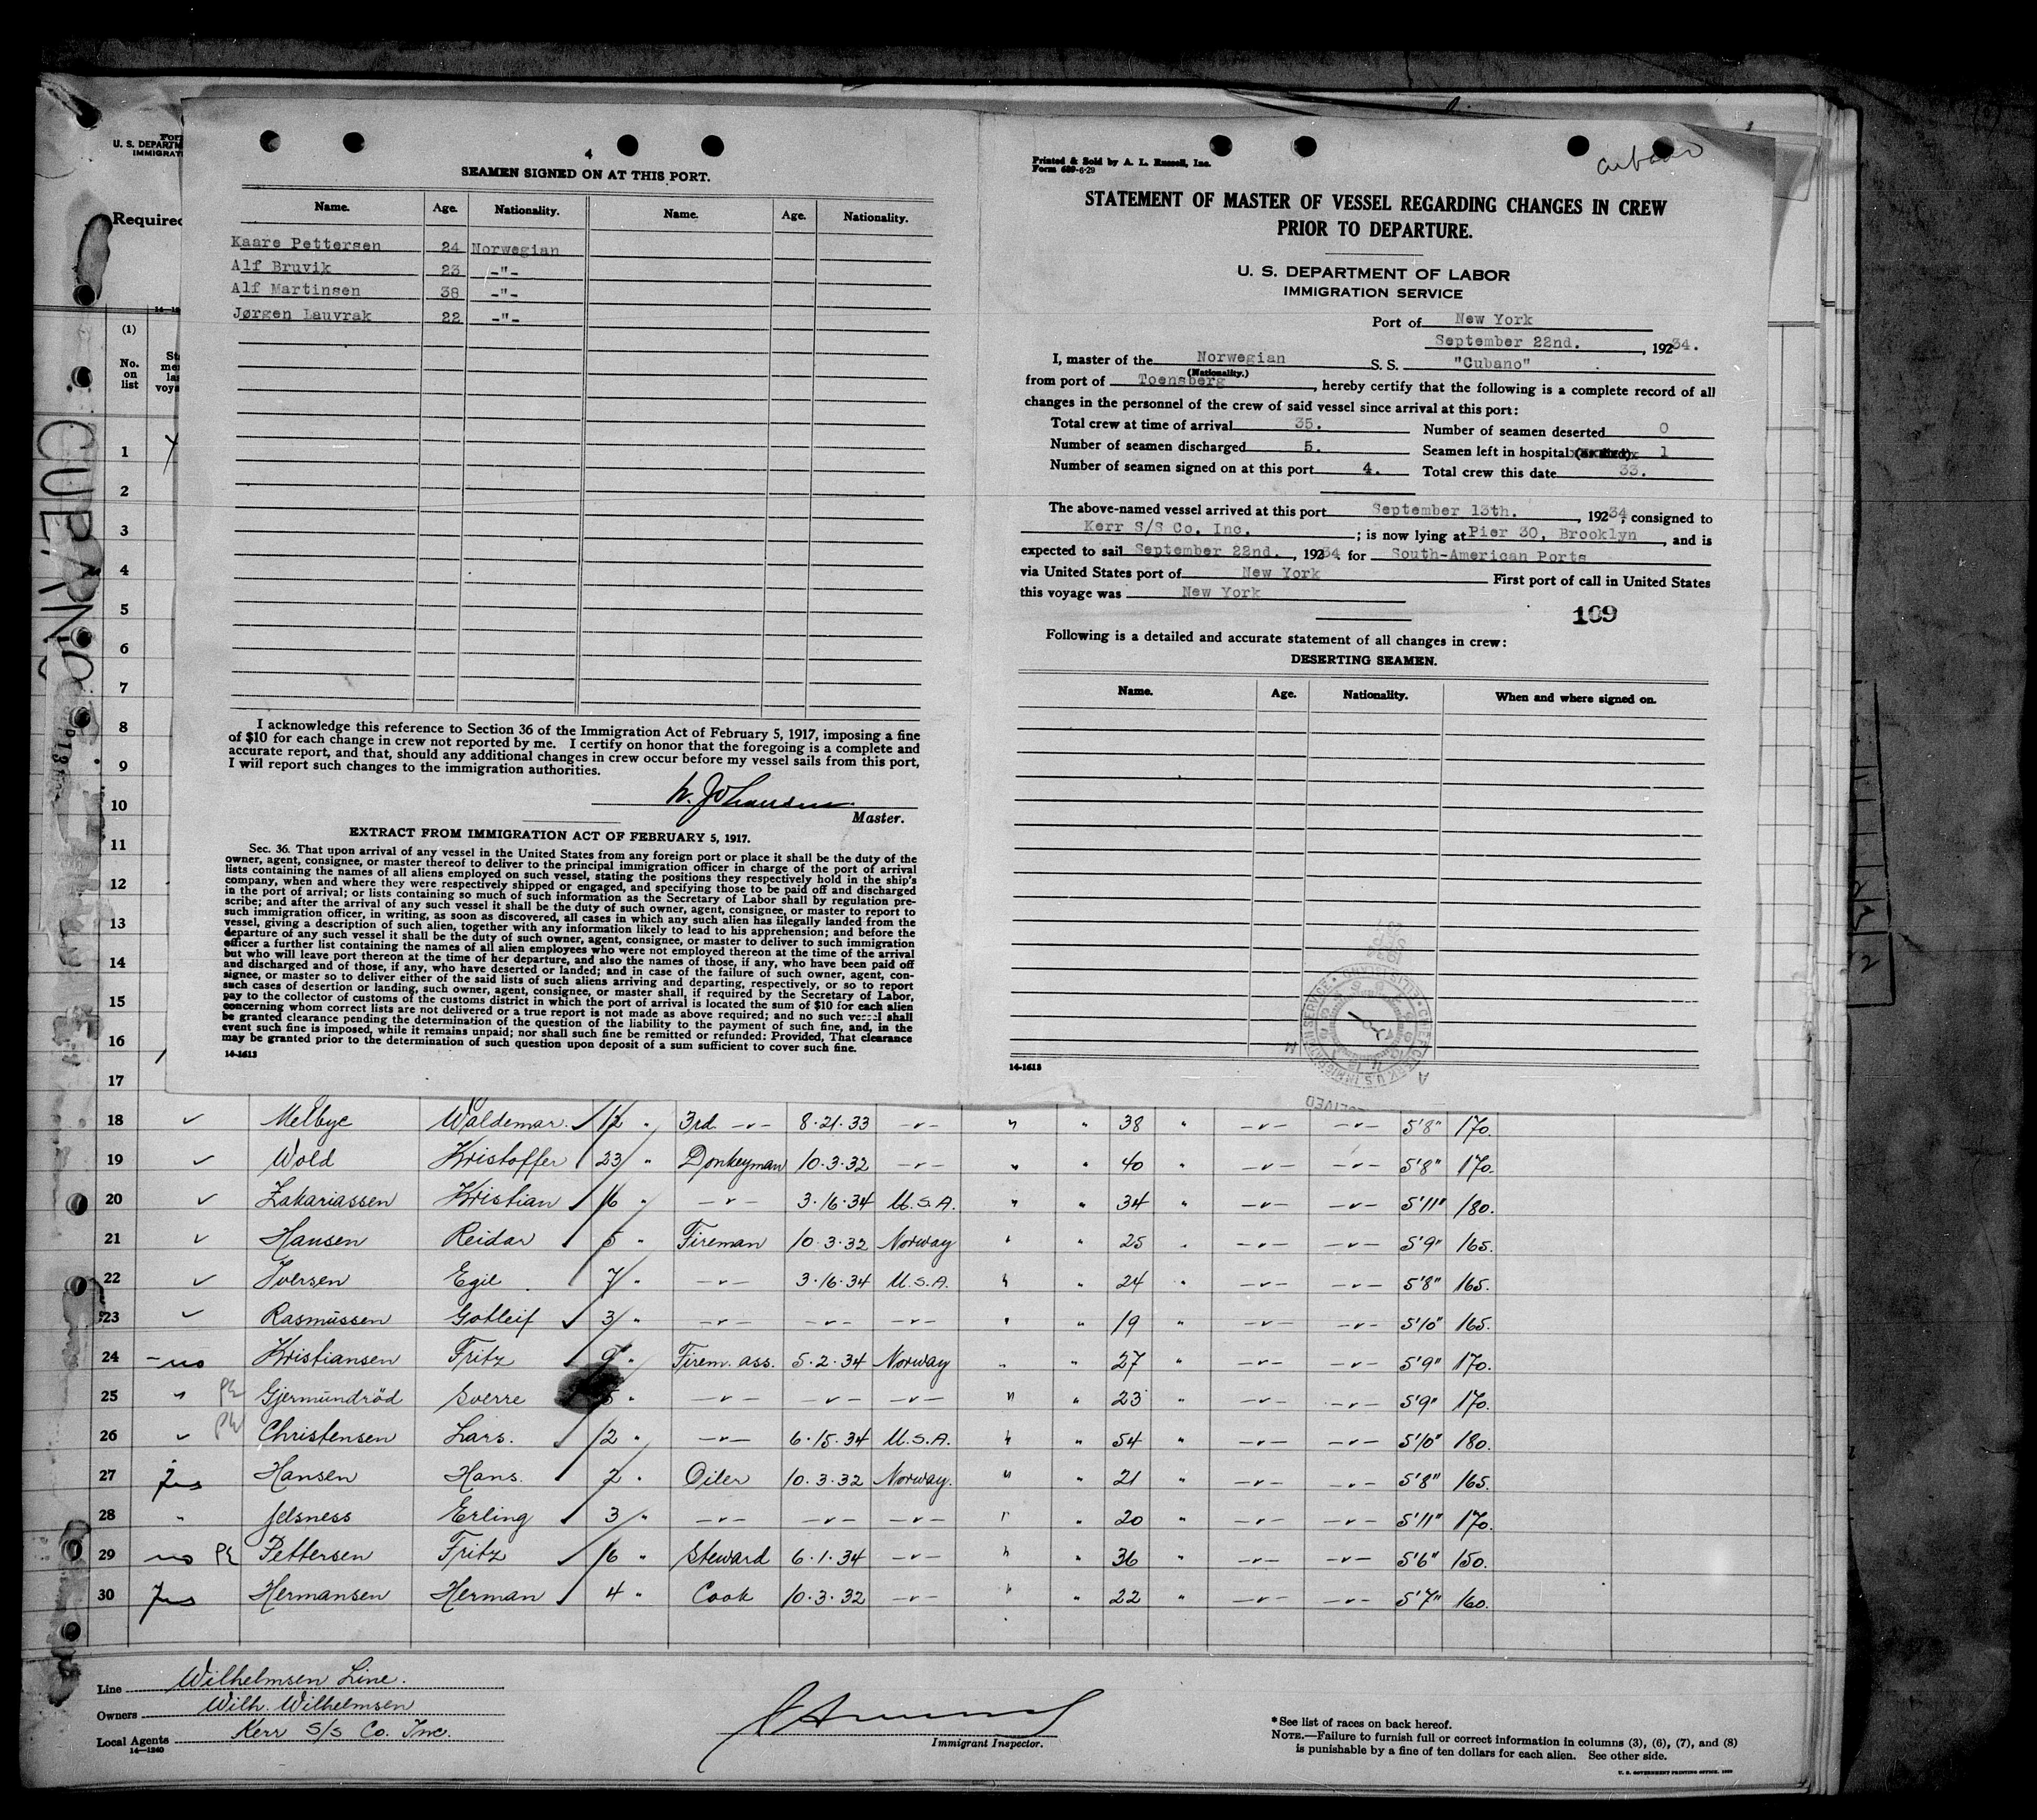 Form
U. S. DEPARTM
IMMIGRAT
Required
(1)
No.
on
list
CUBANO
4
SEAMEN SIGNED ON AT THIS PORT.
Name. Age. Nationality. Name. Age. Nationality.
Kaare Pettersen 24 Norwegian
Alf Bruvik 23 -"-
Alf Martinsen 38 -"-
Jørgen Lauvrak 22 -"-
I acknowledge this reference to Section 36 of the Immigration Act of February 5, 1917, imposing a fine
of $10 for each change in crew not reported by me. I certify on honor that the foregoing is a complete and
accurate report, and that, should any additional changes in crew occur before my vessel sails from this port,
I will report such changes to the immigration authorities.
Master.
EXTRACT FROM IMMIGRATION ACT OF FEBRUARY 5, 1917.
Sec. 36. That upon arrival of any vessel in the United States from any foreign port or place it shall be the duty of the
owner, agent, consignee, or master thereof to deliver to the principal immigration officer in charge of the port of arrival
lists containing the names of all aliens employed on such vessel, stating the positions they respectively hold in the ship's
company, when and where they were respectively shipped or engaged, and specifying those to be paid off and discharged
in the port of arrival; or lists containing so much of such information as the Secretary of Labor shall by regulation pre-
scribe; and after the arrival of any such vessel it shall be the duty of such owner, agent, consignee, or master to report to
such immigration officer, in writing, as soon as discovered, all cases in which any such alien has illegally landed from the
vessel, giving a description of such alien, together with any information likely to lead to his apprehension; and before the
departure of any such vessel it shall be the duty of such owner, agent, consignee, or master to deliver to such immigration
officer a further list containing the names of all alien employees who were not employed thereon at the time of the arrival
but who will leave port thereon at the time of her departure, and also the names of those, if any, who have been paid off
and discharged and of those, if any, who have deserted or landed; and in case of the failure of such owner, agent, con-
signee, or master so to deliver either of the said lists of such aliens arriving and departing, respectively, or so to report
such cases of desertion or landing, such owner, agent, consignee, or master shall, if required by the Secretary of Labor,
pay to the collector of customs of the customs district in which the port of arrival is located the sum of $10 for each alien
concerning whom correct lists are not delivered or a true report is not made as above required; and no such vessel shall
be granted clearance pending the determination of the question of the liability to the payment of such fine, and, in the
event such fine is imposed, while it remains unpaid; nor shall such fine be remitted or refunded: Provided, That clearance
may be granted prior to the determination of such question upon deposit of a sum sufficient to cover such fine.
14-1613
Cubano
Printed & Sold by A. L. Russell, Inc.
Form 689-6-29
STATEMENT OF MASTER OF VESSEL REGARDING CHANGES IN CREW
PRIOR TO DEPARTURE.
U. S. DEPARTMENT OF LABOR
IMMIGRATION SERVICE
Port of New York
September 22nd. , 19234.
I, master of the Norwegian S. S. "Cubano"
(Nationality.)
from port of Toensberg , hereby certify that the following is a complete record of all
changes in the personnel of the crew of said vessel since arrival at this port:
Total crew at time of arrival 35. Number of seamen deserted 0
Number of seamen discharged 5. Seamen left in hospital 1
Number of seamen signed on at this port 4. Total crew this date 33.
The above-named vessel arrived at this port September 13th. , 19234, consigned to
Kerr S/S Co. Inc. ; is now lying at Pier 30, Brooklyn , and is
expected to sail September 22nd. , 19234 for South-American Ports
via United States port of New York First port of call in United States
this voyage was New York
109
Following is a detailed and accurate statement of all changes in crew:
DESERTING SEAMEN.
Name. Age. Nationality. When and where signed on.
14-1613
1
2
3
4
5
6
7
8
9
10
11
12
13
14
15
16
17
18 ✓ Melbye Waldemar. 12 " 3rd -"- 8.21.33 -"- " " 38 " -"- -"- 5'8" 170.
19 ✓ Wold Kristoffer 23 " Donkeyman 10.3.32 -"- " " 40 " -"- -"- 5'8" 170.
20 ✓ Zakariassen Kristian 16 " -"- 3.16.34 U.S.A. " " 34 " -"- -"- 5'11" 180.
21 ✓ Hansen Reidar 5 " Fireman 10.3.32 Norway " " 25 " -"- -"- 5'9" 165.
22 ✓ Iversen Egil 7 " -"- 3.16.34 U.S.A. " " 24 " -"- -"- 5'8" 165.
23 ✓ Rasmüssen Gotleif 3 " -"- -"- -"- " " 19 " -"- -"- 5'10" 165.
24 no Kristiansen Fritz 9 " Firem. ass. 5.2.34 Norway " " 27 " -"- -"- 5'9" 170.
25 " Gjermundröd Sverre " -"- -"- -"- " " 23 " -"- -"- 5'9" 170.
26 ✓ Christensen Lars. 12 " -"- 6.15.34 U.S.A. " " 54 " -"- -"- 5'10" 180.
27 yes Hansen Hans. 2 " Oiler 10.3.32 Norway. " " 21 " -"- -"- 5'8" 165.
28 " Jelsness Erling 3 " -"- -"- -"- " " 20 " -"- -"- 5'11" 170.
29 no Pettersen Fritz 16 " Steward 6.1.34 -"- " " 36 " -"- -"- 5'6" 150.
30 yes Hermansen Herman 4 " Cook 10.3.32 -"- " " 22 " -"- -"- 5'7" 160.
Line Wilhelmsen Line.
Owners Wilh. Wilhelmsen
Local Agents Kerr S/S Co. Inc.
14-1240
Immigrant Inspector.
*See list of races on back hereof.
NOTE.—Failure to furnish full or correct information in columns (3), (6), (7), and (8)
is punishable by a fine of ten dollars for each alien. See other side.
U. S. GOVERNMENT PRINTING OFFICE: 1929